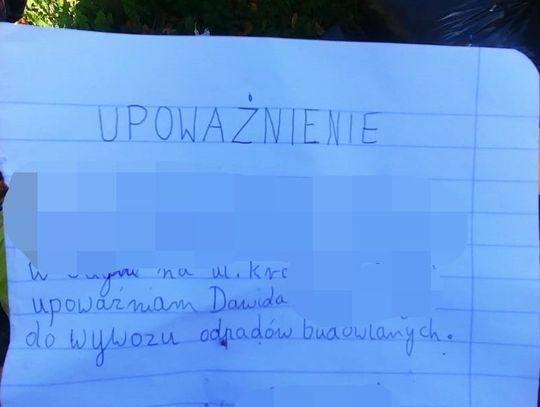 UPOWAŻNIENIE
na ul. Kre
upoważniam Dawida
do wywozu odpadów budowlanych.